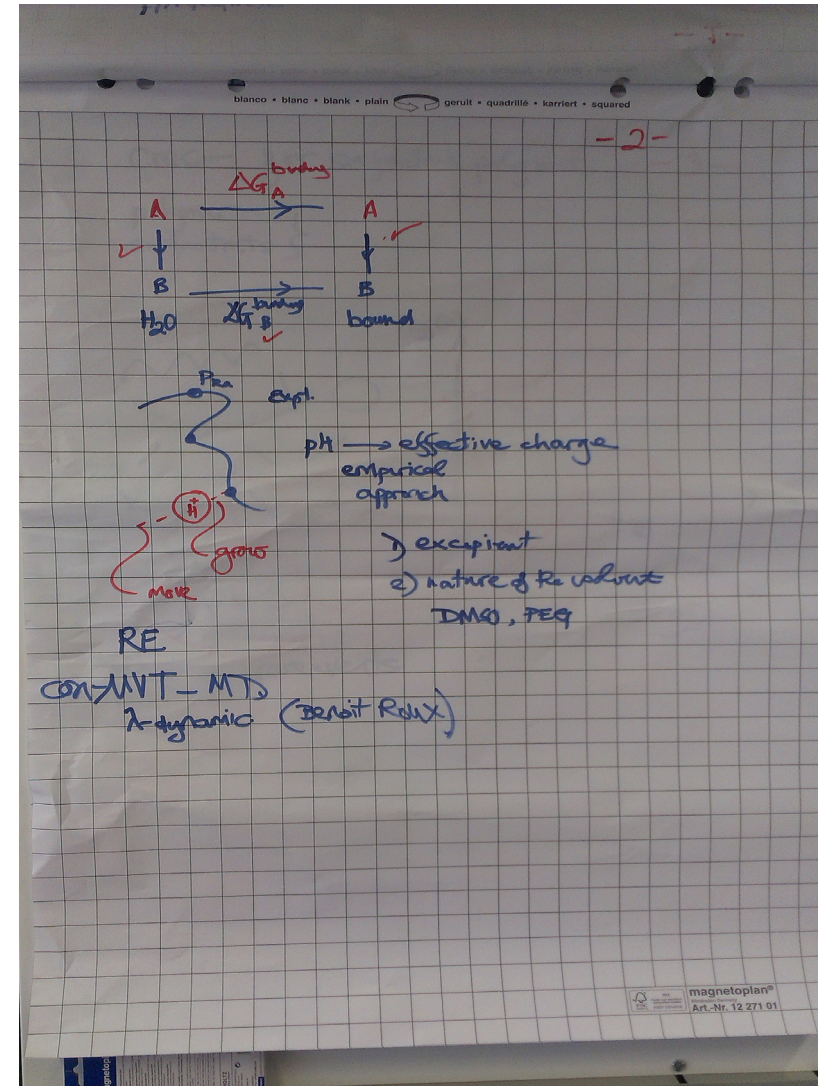 - 1 -
blanco • blanc • blank • plain geruit • quadrillé • karriert • squared
- 2 -
ΔG_A^binding
A A
B B
H2O ΔG_B^binding bound
PKa Expt.
pH → effective charge
empirical
approach
H+
grow
move
1) excipient
2) nature of the solvent
DMSO, PEG
RE
con-μVT-MD
λ-dynamic (Benoit Roux)
magnetoplan®
Art.-Nr. 12 271 01
magnetoplan